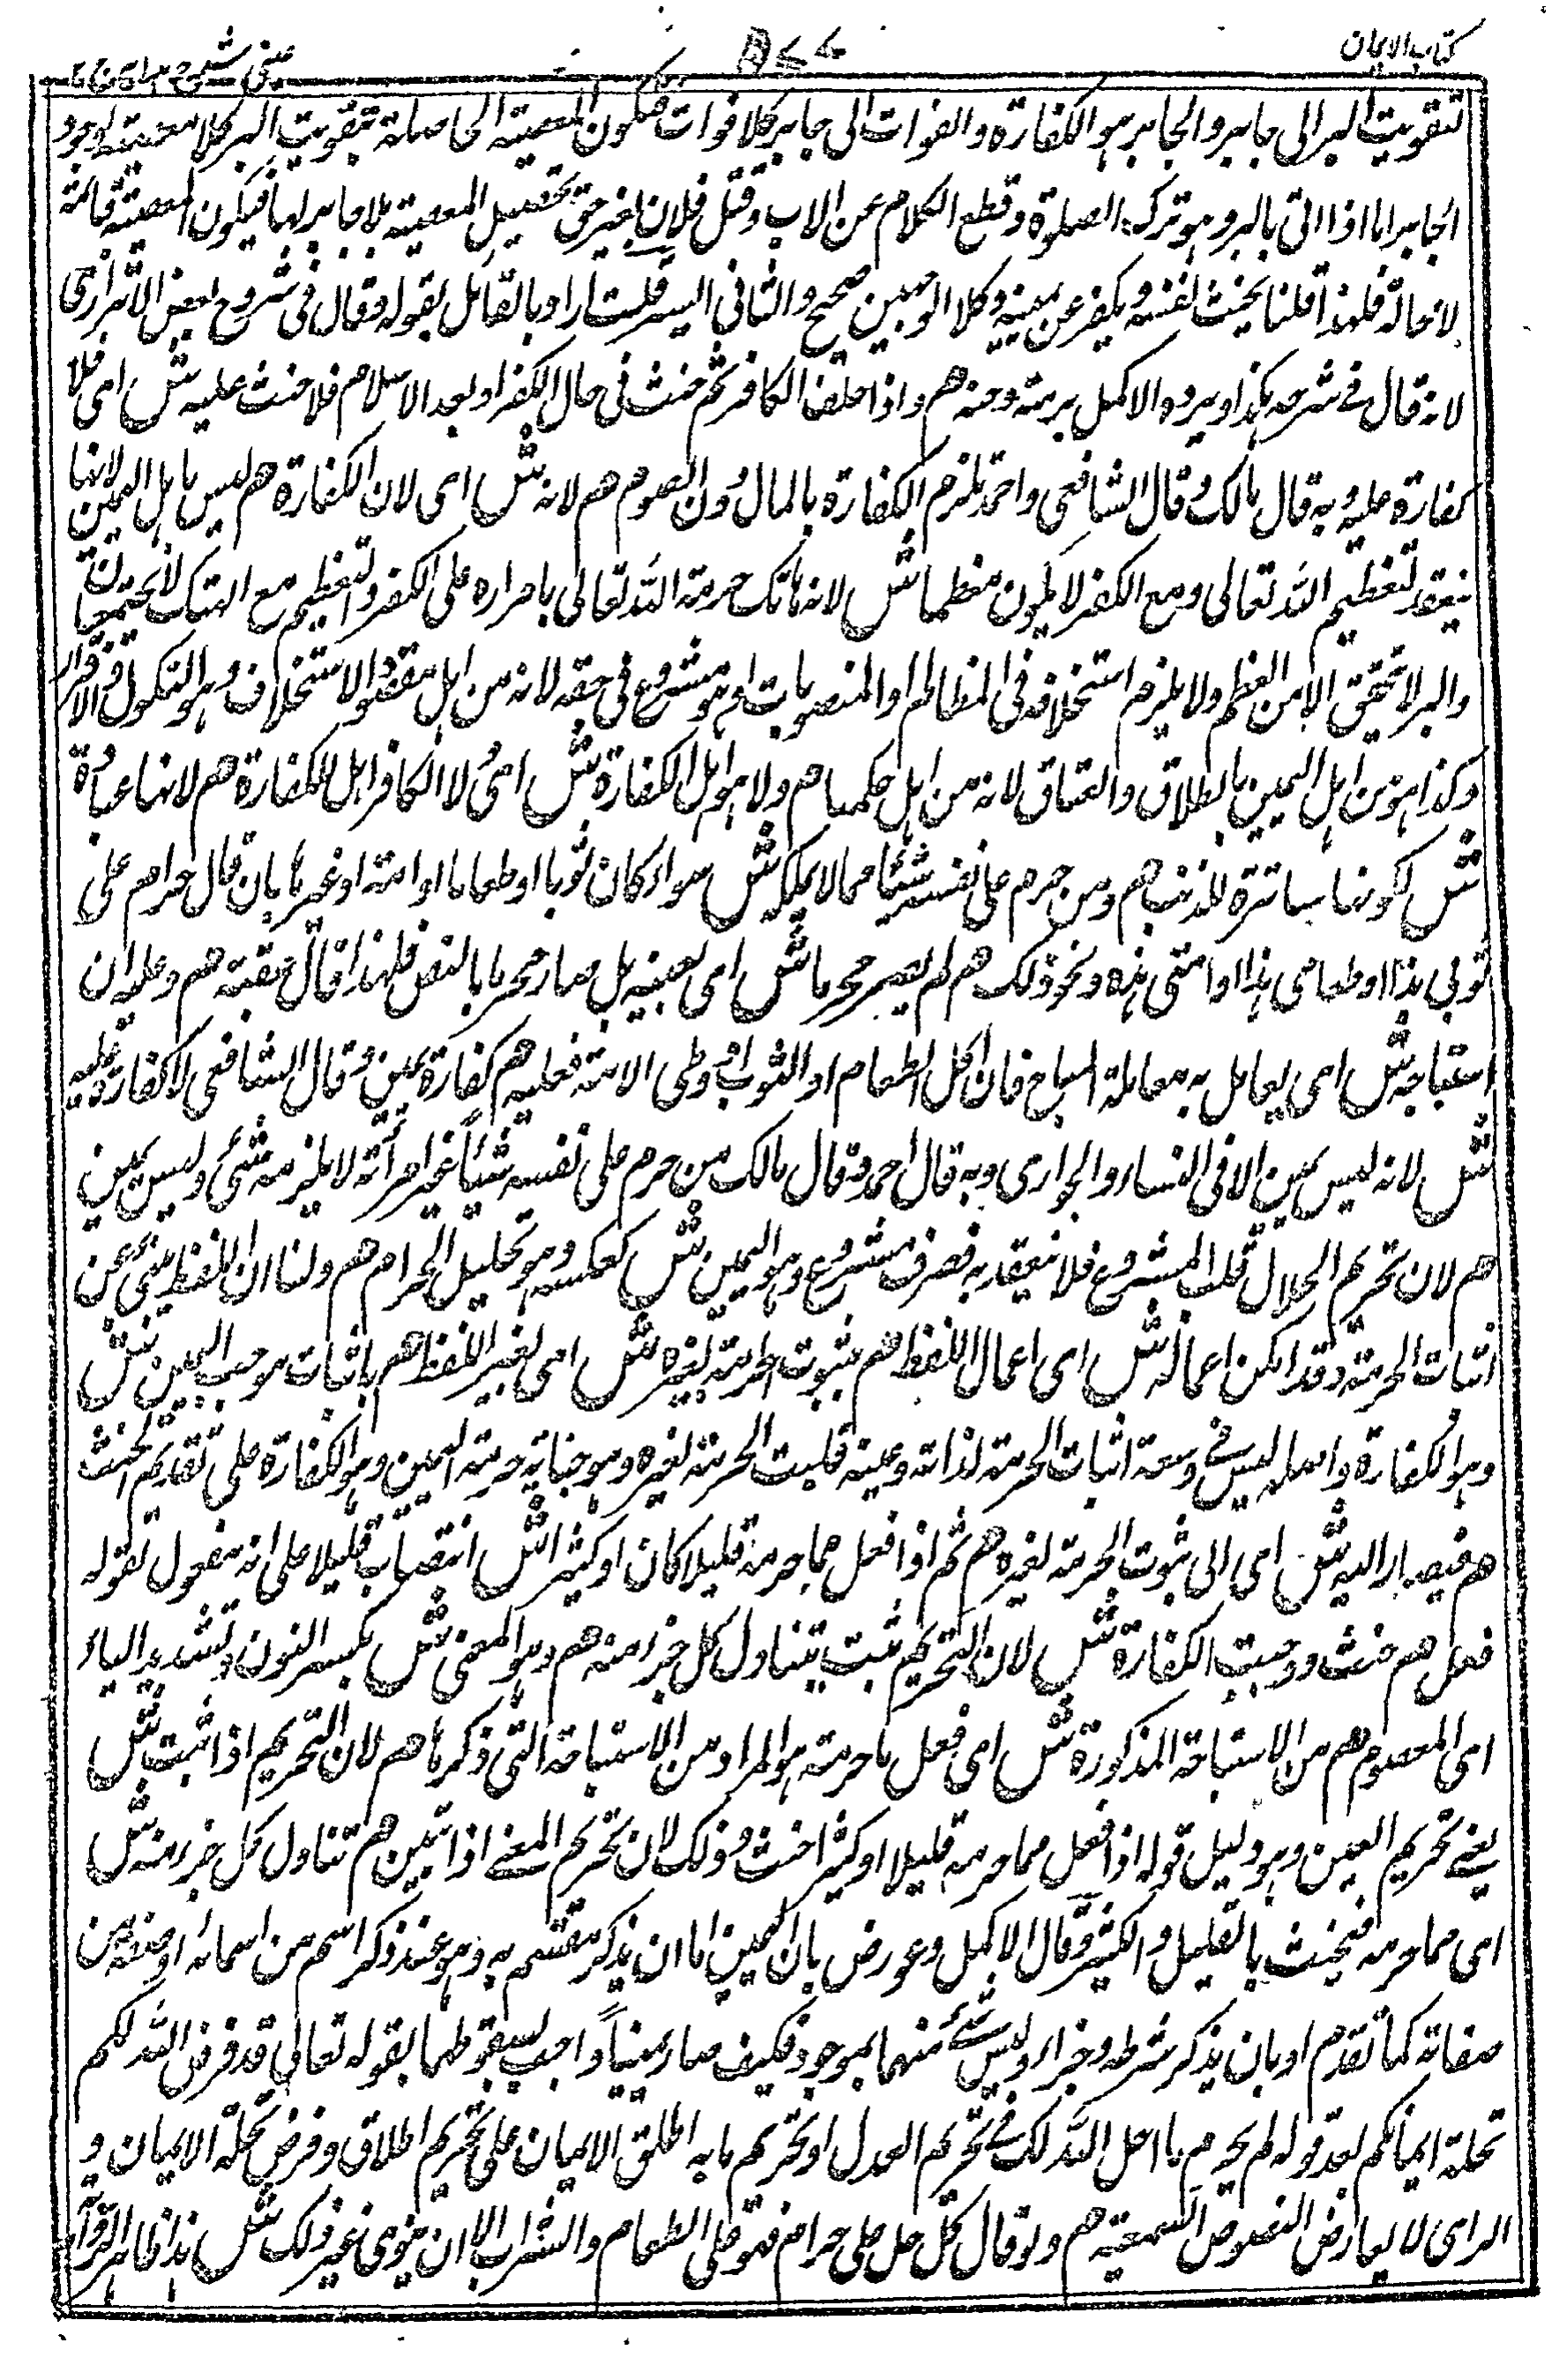 كتاب الايمان
عينى شرح هداية
لتفويت البر الى جابر والجابر هو الكفارة والفوات الى جابر كلا فوات فتكون المعصية الحاصلة بتفويت البر كلا معصية لوجود
الجابر اما اذا اتى بالبر وهو ترك الصلوة وقطع الكلام عن الاب وقتل فلان بغير حق تحصيل المعصية بلا جابر لها فيكون المعصية قائمة
لا محالة فلهذا قلنا يحنث نفسه ويكفر عن يمينه وكلا الوجهين صحيح والثانى اليسر قلت اراد بالقائل بقوله وقال فى شروح بعض الاترازى
لانه قال فى شرحه هكذا ويرده الاكمل برمته وحنه هم واذا حلف الكافر ثم حنث فى حال الكفر او بعد الاسلام فلا حنث عليه ش اى فلا
كفارة عليه وبه قال مالك وقال الشافعى واحمد تلزم الكفارة بالمال دون الصوم هم لانه ش اى لان الكفارة هم ليس باهل اليمين لانها
تنعقد لتعظيم الله تعالى ومع الكفر لا يكون معظما ش لانه هاتك حرمة الله تعالى باصراره على الكفر والتعظيم مع الهتك لا يجتمعان
والبر لا تحقق الا من المعظم ولا يلزم استحلافه فى المظالم والمنصوبات اه هو مشروع فى حقه لانه من اهل مقصود الاستحلاف وهو النكول والاقرار
وكذا هو من اهل اليمين بالطلاق والعتاق لانه من اهل حكمهما هم ولا هو اهل الكفارة ش اى لا الكافر اهل للكفارة هم لانها عبادة
ش لكونها ساترة للذنب هم ومن حرم على نفسه شيئا مما لا يملكه ش سواء كان ثوبا او طعاما او امة او غيرها بان قال حرام على
ثوبى هذا او طعامى هذا او امتى هذه ونحو ذلك هم لم يصر محرما ش اى لعينه بل صار محرما بالنص فلهذا قال عقبه هم وعليه ان
استباحه ش اى يعامل به معاملة المباح فان اكل الطعام او الثوب او وطى الامة فعليه هم كفارة يمين وقال الشافعى لا كفارة عليه
ش لانه ليس يمين الا فى النساء والجوارى وبه قال احمد وقال مالك من حرم على نفسه شيئاً غير امرأته لا يلزمه شئ وليس يمين
هم لان تحريم الحلال قلب المشروع فلا ينعقد به تصرف مشروع وهو اليمين ش كعكسه وهو تحليل الحرام هم ولنا ان اللفظ ينبئ عن
اثبات الحرمة وقد امكن اعماله ش اى اعمال اللفظ هم بثبوت الحرمة لغيره ش اى لغير اللفظ هم باثبات موجب اليمين ش
وهو الكفارة واصله ليس فى وسعه اثبات الحرمة لذاته وعينه قلبت الحرمة لغيره وهو جناية حرمة اليمين وهو الكفارة على تقديم الحنث
هم فيصار اليه ش اى الى ثبوت الحرمة لغيره هم ثم اذا فعل مما حرمه قليلا كان او كثيرا ش انتصاب قليلا على انه مفعول لقوله
فعل هم حنث ووجبت الكفارة ش لان التحريم ثبت يتناول كل جزء منه هم وهو المعنى ش بكسر النون وتشديد الياء
اى المعصوم هم من الاستباحة المذكورة ش اى فعل ما حرمه هو المراد من الاستباحة التى ذكرها هم لان التحريم اذا ثبت ش
يعنى تحريم العين وهو دليل قوله اذا فعل مما حرمه قليلا او كثيرا حنث وذلك لان تحريم المعنى اذا تبين هم تناول كل جزء منه ش
اى مما حرمه فيحنث بالقليل والكثير وقال الاكمل وعورض بان اليمين اما ان يذكر مقسم به وهو عند ذكر اسم من اسمائه او صفة من
صفاته كما تقدم او بان يذكر شرط وجزاء وليس شئ منهما بموجود فكيف صار يميناً واجيب بسقوطهما بقوله تعالى قد فرض الله لكم
تحلة ايمانكم بعد قوله لم تحرم ما احل الله لك فى تحريم العسل او تحريم مارية اطلق الايمان على تحريم اطلاق وفرض تحلة الايمان و
الراى لا يعارض النصوص السمعية هم ولو قال كل حل على حرام فهو على الطعام والشراب الا ان ينوى غير ذلك ش هذا ظاهر الرواية